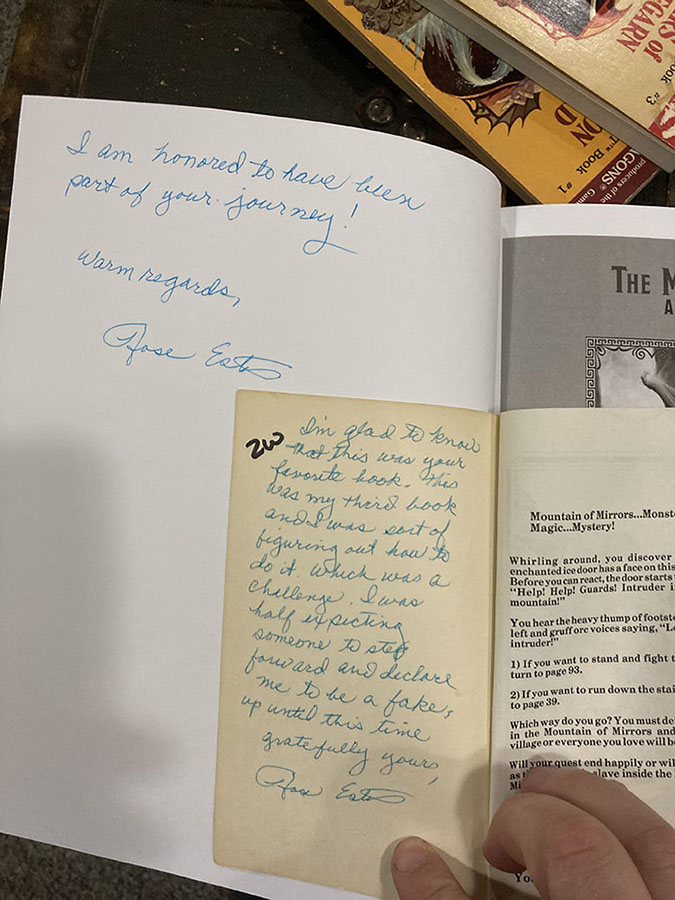 RS of
GARN
Book #3
ON
D
™ Book #1
AGONS®
producers of the
Game
I am honored to have been
part of your journey!
Warm regards,
Rose Estes
THE M
A
2W
I'm glad to know
that this was your
favorite book. This
was my third book
and I was sort of
figuring out how to
do it. Which was a
challenge. I was
half expecting
someone to step
forward and declare
me to be a fake,
up until this time
gratefully yours,
Rose Estes
Mountain of Mirrors...Monst
Magic...Mystery!
Whirling around, you discover
enchanted ice door has a face on this
Before you can react, the door starts
"Help! Help! Guards! Intruder i
mountain!"
You hear the heavy thump of footste
left and gruff orc voices saying, "L
intruder!"
1) If you want to stand and fight t
turn to page 93.
2) If you want to run down the stai
to page 39.
Which way do you go? You must de
in the Mountain of Mirrors and
village or everyone you love will b
Will your quest end happily or wil
as slave inside the
Mi
Yo